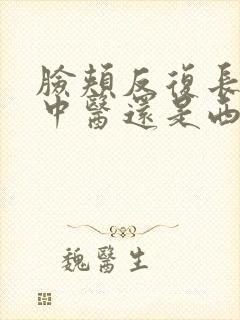 臉頰反復長
中醫還是西
魏醫生